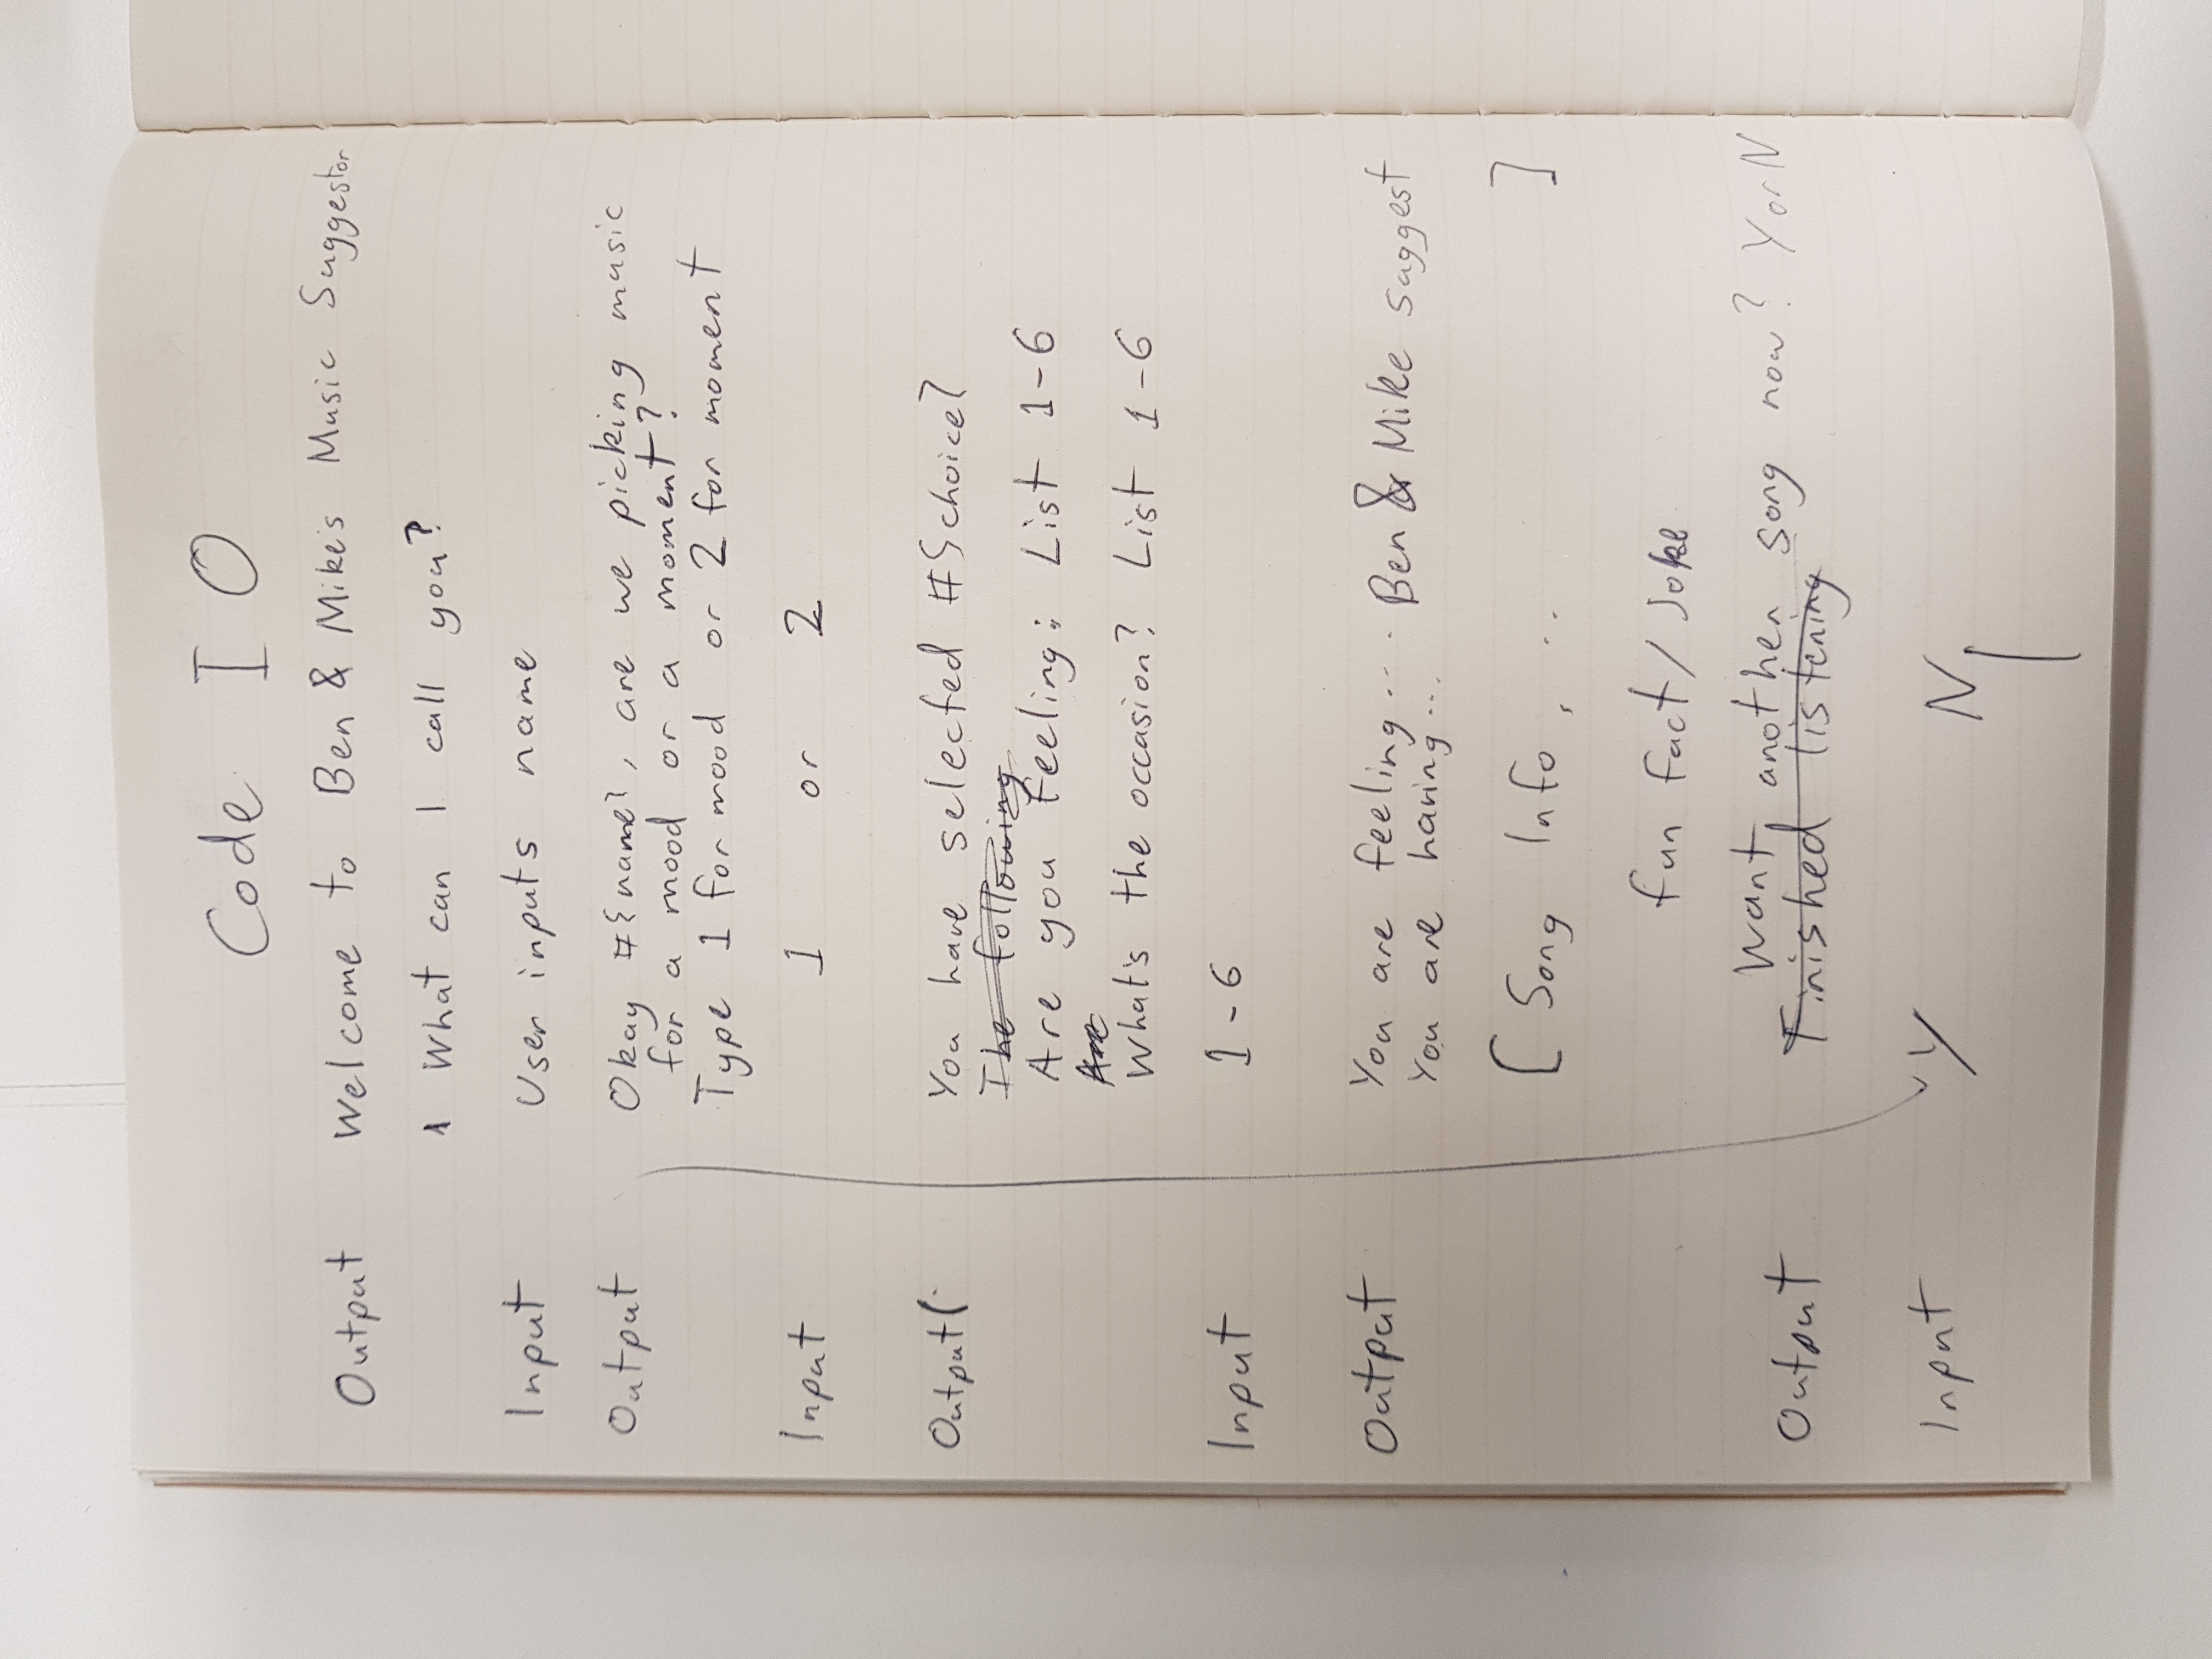 Code I O
Output Welcome to Ben & Mike's Music Suggestor
What can I call you?
Input User inputs name
Output Okay #{name}, are we picking music
for a mood or a moment?
Type 1 for mood or 2 for moment
Input 1 or 2
Output You have selected #{choice}
The following
Are you feeling: List 1-6
Are
What's the occasion? List 1-6
Input 1-6
Output You are feeling... Ben & Mike suggest
You are having...
[ Song Info, .. ]
fun fact / Joke
Want another song now? Y or N
Output Finished listening
Input Y N